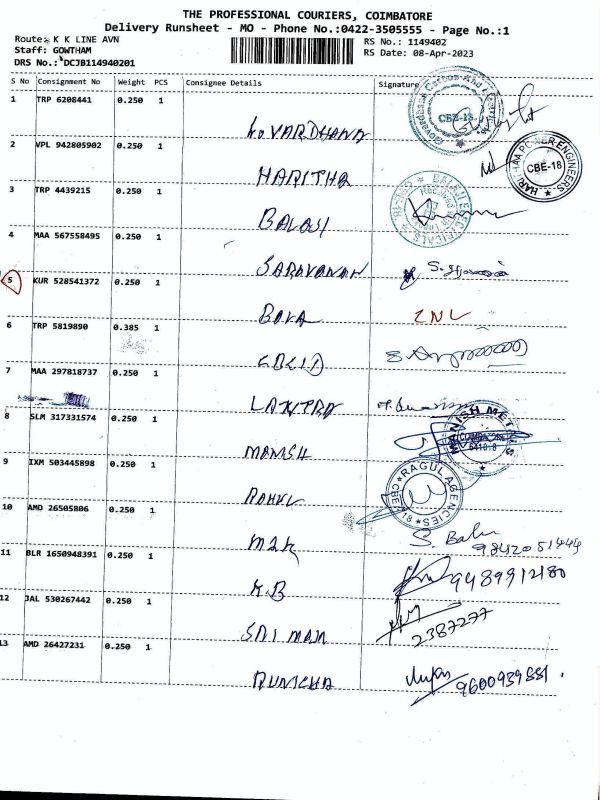 THE PROFESSIONAL COURIERS, COIMBATORE
Delivery Runsheet - MO - Phone No.:0422-3505555 - Page No.:1
Route: K K LINE AVN
RS No.: 1149402
Staff: GOWTHAM
RS Date: 08-Apr-2023
DRS No.: DCJB114940201
S No Consignment No Weight PCS Consignee Details Signature
1 TRP 6208441 0.250 1
GOVARDHANA
CBE-18
2 VPL 942805902 0.250 1
HARITHA
HARIHAA POWER ENGINEERS CBE-18
3 TRP 4439215 0.250 1
BALAJI
BALAJI ELECTRICALS
4 MAA 567558495 0.250 1
SARAVANAN
5 KUR 528541372 0.250 1
BAVA
CNL
6 TRP 5819890 0.385 1
7 MAA 297818737 0.250 1
8 SLM 317331574 0.250 1
MANISH
MANISH METALS
9 IXM 503445898 0.250 1
RAHUL
RAGUL AGENCIES CBE-18
10 AMD 26505806 0.250 1
M2K
S. Balu
9842051444
11 BLR 1650948391 0.250 1
K.B
9489912180
12 JAL 530267442 0.250 1
SRI MAN
2387277
13 AMD 26427231 0.250 1
9600939881